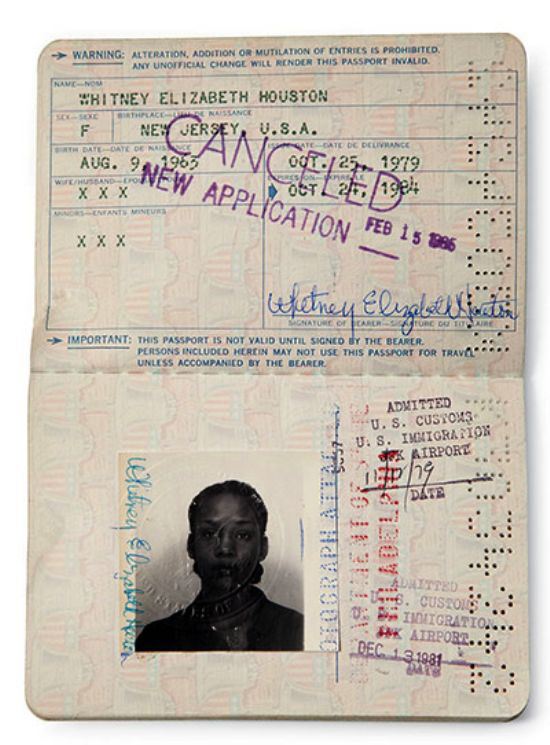 WARNING: ALTERATION, ADDITION OR MUTILATION OF ENTRIES IS PROHIBITED.
ANY UNOFFICIAL CHANGE WILL RENDER THIS PASSPORT INVALID.
NAME—NOM
WHITNEY ELIZABETH HOUSTON
SEX—SEXE
BIRTHPLACE—LIEU DE NAISSANCE
F
NEW JERSEY, U.S.A.
BIRTH DATE—DATE DE NAISSANCE
ISSUE DATE—DATE DE DELIVRANCE
AUG. 9, 1963
OCT. 25, 1979
WIFE/HUSBAND—
EXPIRES ON—EXPIRE LE
X X X
OCT. 24, 1984
MINORS—ENFANTS MINEURS
X X X
CANCELED
NEW APPLICATION
FEB 15
Whitney Elizabeth Houston
SIGNATURE OF BEARER—SIGNATURE DU TITULAIRE
IMPORTANT: THIS PASSPORT IS NOT VALID UNTIL SIGNED BY THE BEARER.
PERSONS INCLUDED HEREIN MAY NOT USE THIS PASSPORT FOR TRAVEL
UNLESS ACCOMPANIED BY THE BEARER.
Whitney Elizabeth Houston
PHOTOGRAPH ATTA
DEPARTMENT OF
PHILADELPHIA
ADMITTED
U. S. CUSTOMS
U. S. IMMIGRATION
JFK AIRPORT
DATE
ADMITTED
U. S. CUSTOMS
U. S. IMMIGRATION
JFK AIRPORT
DEC 13 1981
DATE